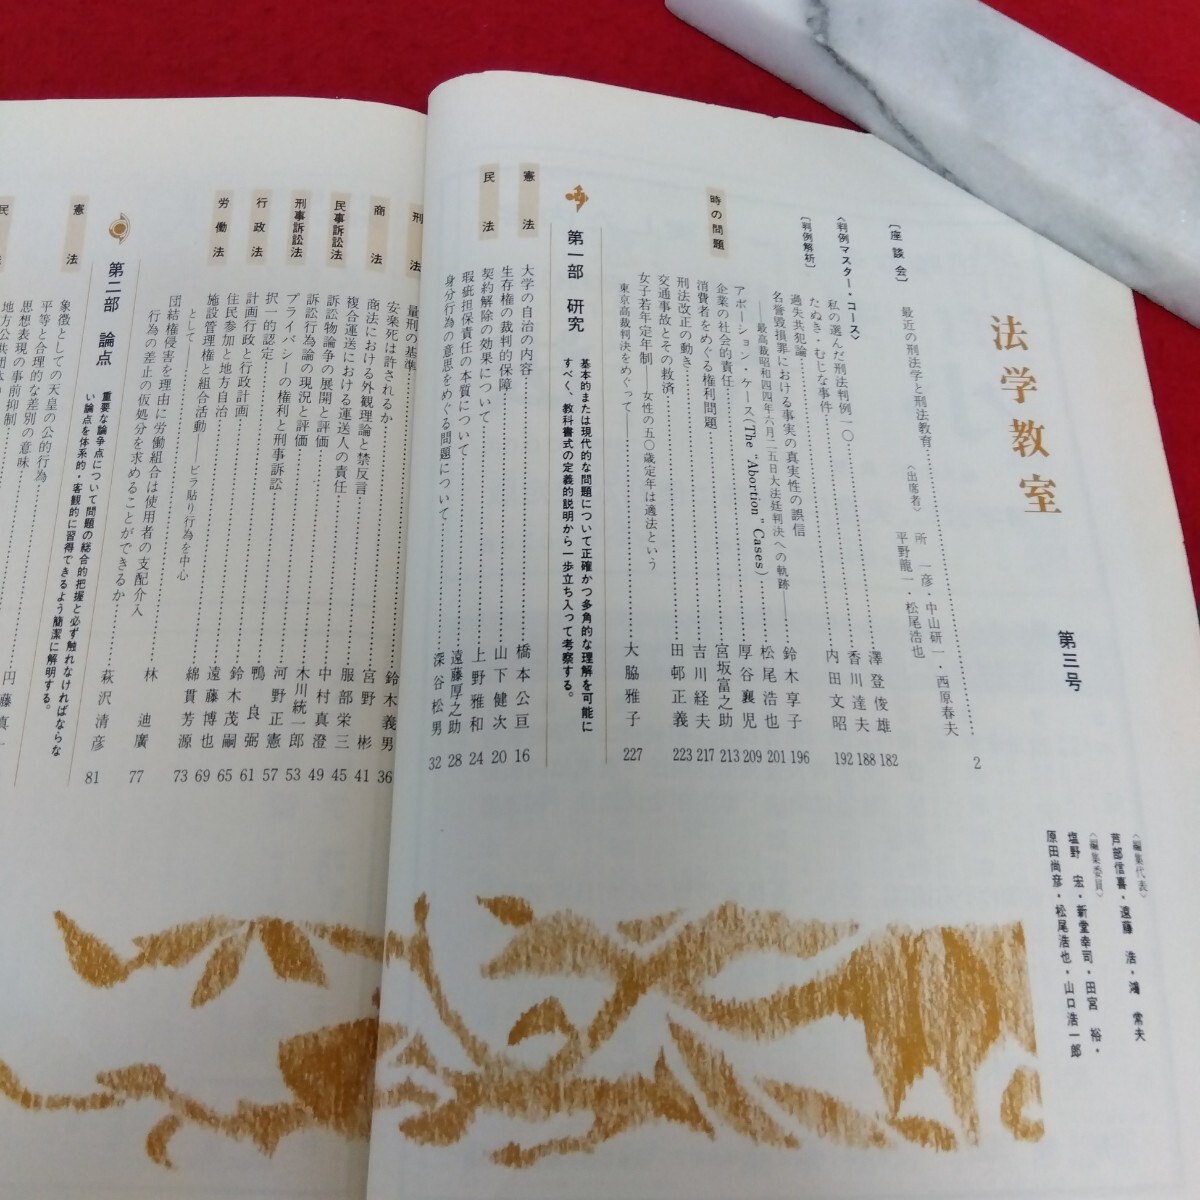 法学教室
第三号
〈編集代表〉
芦部信喜・遠藤 浩・鴻 常夫
〈編集委員〉
塩野 宏・新堂幸司・田宮 裕・
原田尚彦・松尾浩也・山口浩一郎
〔座談会〕
最近の刑法学と刑法教育 2
〈出席者〉
所 一彦・中山研一・西原春夫
平野龍一・松尾浩也
〈判例マスター・コース〉
私の選んだ刑法判例一〇 澤登俊雄 182
たぬき・むじな事件 香川達夫 188
過失共犯論 内田文昭 192
〔判例解析〕
名誉毀損罪における事実の真実性の誤信
──最高裁昭和四四年六月二五日大法廷判決への軌跡── 鈴木享子 196
時の問題
アボーション・ケース(The "Abortion" Cases) 松尾浩也 201
企業の社会的責任 厚谷襄児 209
消費者をめぐる権利問題 宮坂富之助 213
刑法改正の動き 吉川経夫 217
交通事故とその救済 田邨正義 223
女子若年定年制──女性の五〇歳定年は適法という
東京高裁判決をめぐって── 大脇雅子 227
第一部 研究
基本的または現代的な問題について正確かつ多角的な理解を可能に
すべく、教科書式の定義的説明から一歩立ち入って考察する。
憲法
大学の自治の内容 橋本公亘 16
生存権の裁判的保障 山下健次 20
民法
契約解除の効果について 上野雅和 24
瑕疵担保責任の本質について 遠藤厚之助 28
身分行為の意思をめぐる問題について 深谷松男 32
刑法
量刑の基準 鈴木義男 36
安楽死は許されるか 宮野 彬 41
商法
商法における外観理論と禁反言 服部栄三 45
複合運送における運送人の責任 中村真澄 49
民事訴訟法
訴訟物論争の展開と評価 木川統一郎 53
訴訟行為論の現況と評価 河野正憲 57
刑事訴訟法
プライバシーの権利と刑事訴訟 鴨 良弼 61
択一的認定 鈴木茂嗣 65
行政法
計画行政と行政計画 遠藤博也 69
住民参加と地方自治 綿貫芳源 73
労働法
施設管理権と組合活動──ビラ貼り行為を中心
として── 林 迪廣 77
団結権侵害を理由に労働組合は使用者の支配介入
行為の差止の仮処分を求めることができるか 萩沢清彦 81
第二部 論点
重要な論争点について問題の総合的把握と必ず触れなければならな
い論点を体系的・客観的に習得できるよう簡潔に解明する。
憲法
象徴としての天皇の公的行為
平等と合理的な差別の意味
思想表現の事前抑制